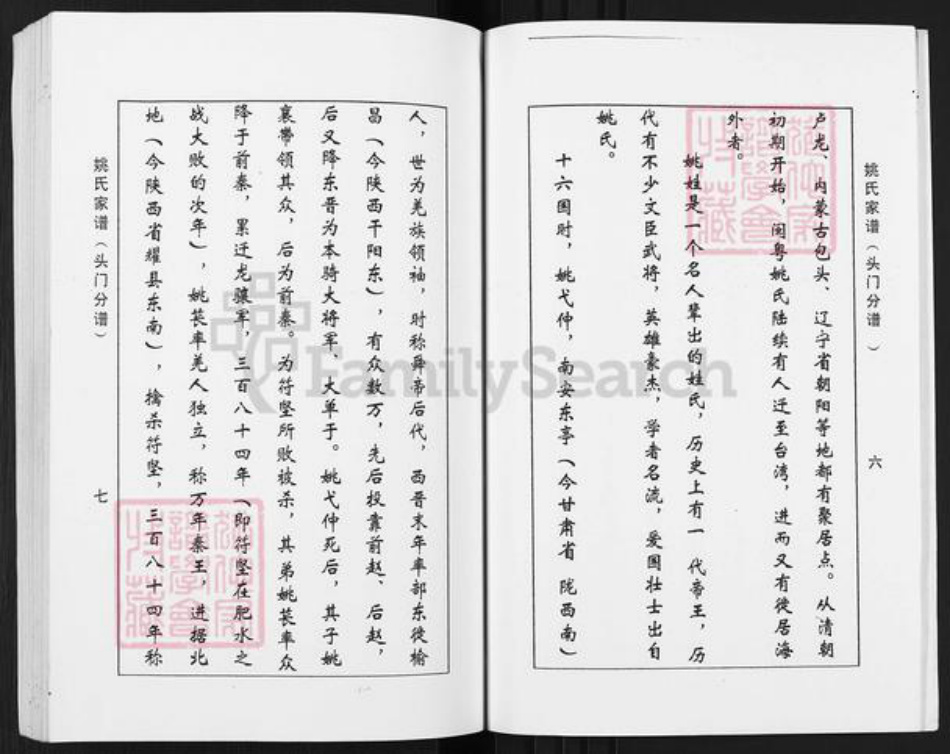 姚氏家谱（头门分谱）
六
卢龙、内蒙古包头、辽宁省朝阳等地都有聚居点。从清朝
初期开始，闽粤姚氏陆续有人迁至台湾，进而又有徙居海
外者。
姚姓是一个名人辈出的姓氏，历史上有一代帝王，历
代有不少文臣武将，英雄豪杰，学者名流，爱国壮士出自
姚氏。
十六国时，姚弋仲，南安东亭（今甘肃省陇西南）
人，世为羌族领袖，时称舜帝后代，西晋末年率部东徙榆
昌（今陕西干阳东），有众数万，先后投靠前赵、后赵，
后又降东晋为本骑大将军、大单于。姚弋仲死后，其子姚
襄带领其众，后为前秦。为符坚所败被杀，其弟姚苌率众
降于前秦，累迁龙骧军，三百八十四年（即符坚在肥水之
战大败的次年），姚苌率羌人独立，称万年秦王，进据北
地（今陕西省耀县东南），擒杀符坚，三百八十四年称
姚氏家谱（头门分谱）
七
FamilySearch